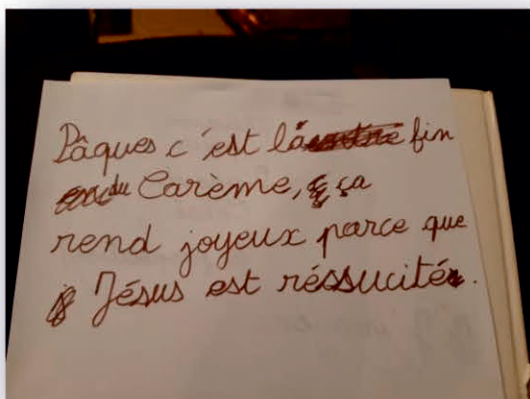 Pâques c'est la fin
du Carème, ça
rend joyeux parce que
Jésus est réssucité.